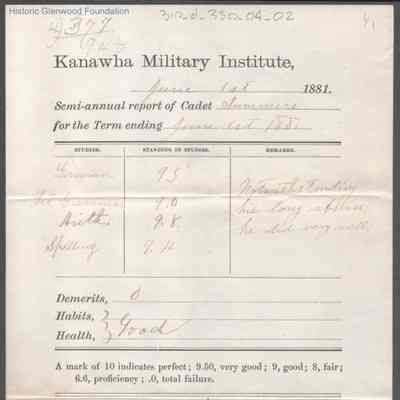 Historic Glenwood Foundation
312-d-330-04-02
377
Kanawha Military Institute,
June 1st 1881.
Semi-annual report of Cadet Summers
for the Term ending June 1st 1881
STUDIES. STANDING IN STUDIES. REMARKS.
German 9.5
Grammar 9.0 Notwithstanding
Arith 9.8 his long absence,
Spelling 9.4 he did very well.
Demerits, 0
Habits, }
Health, } Good
A mark of 10 indicates perfect; 9.50, very good; 9, good; 8, fair;
6.6, proficiency; .0, total failure.